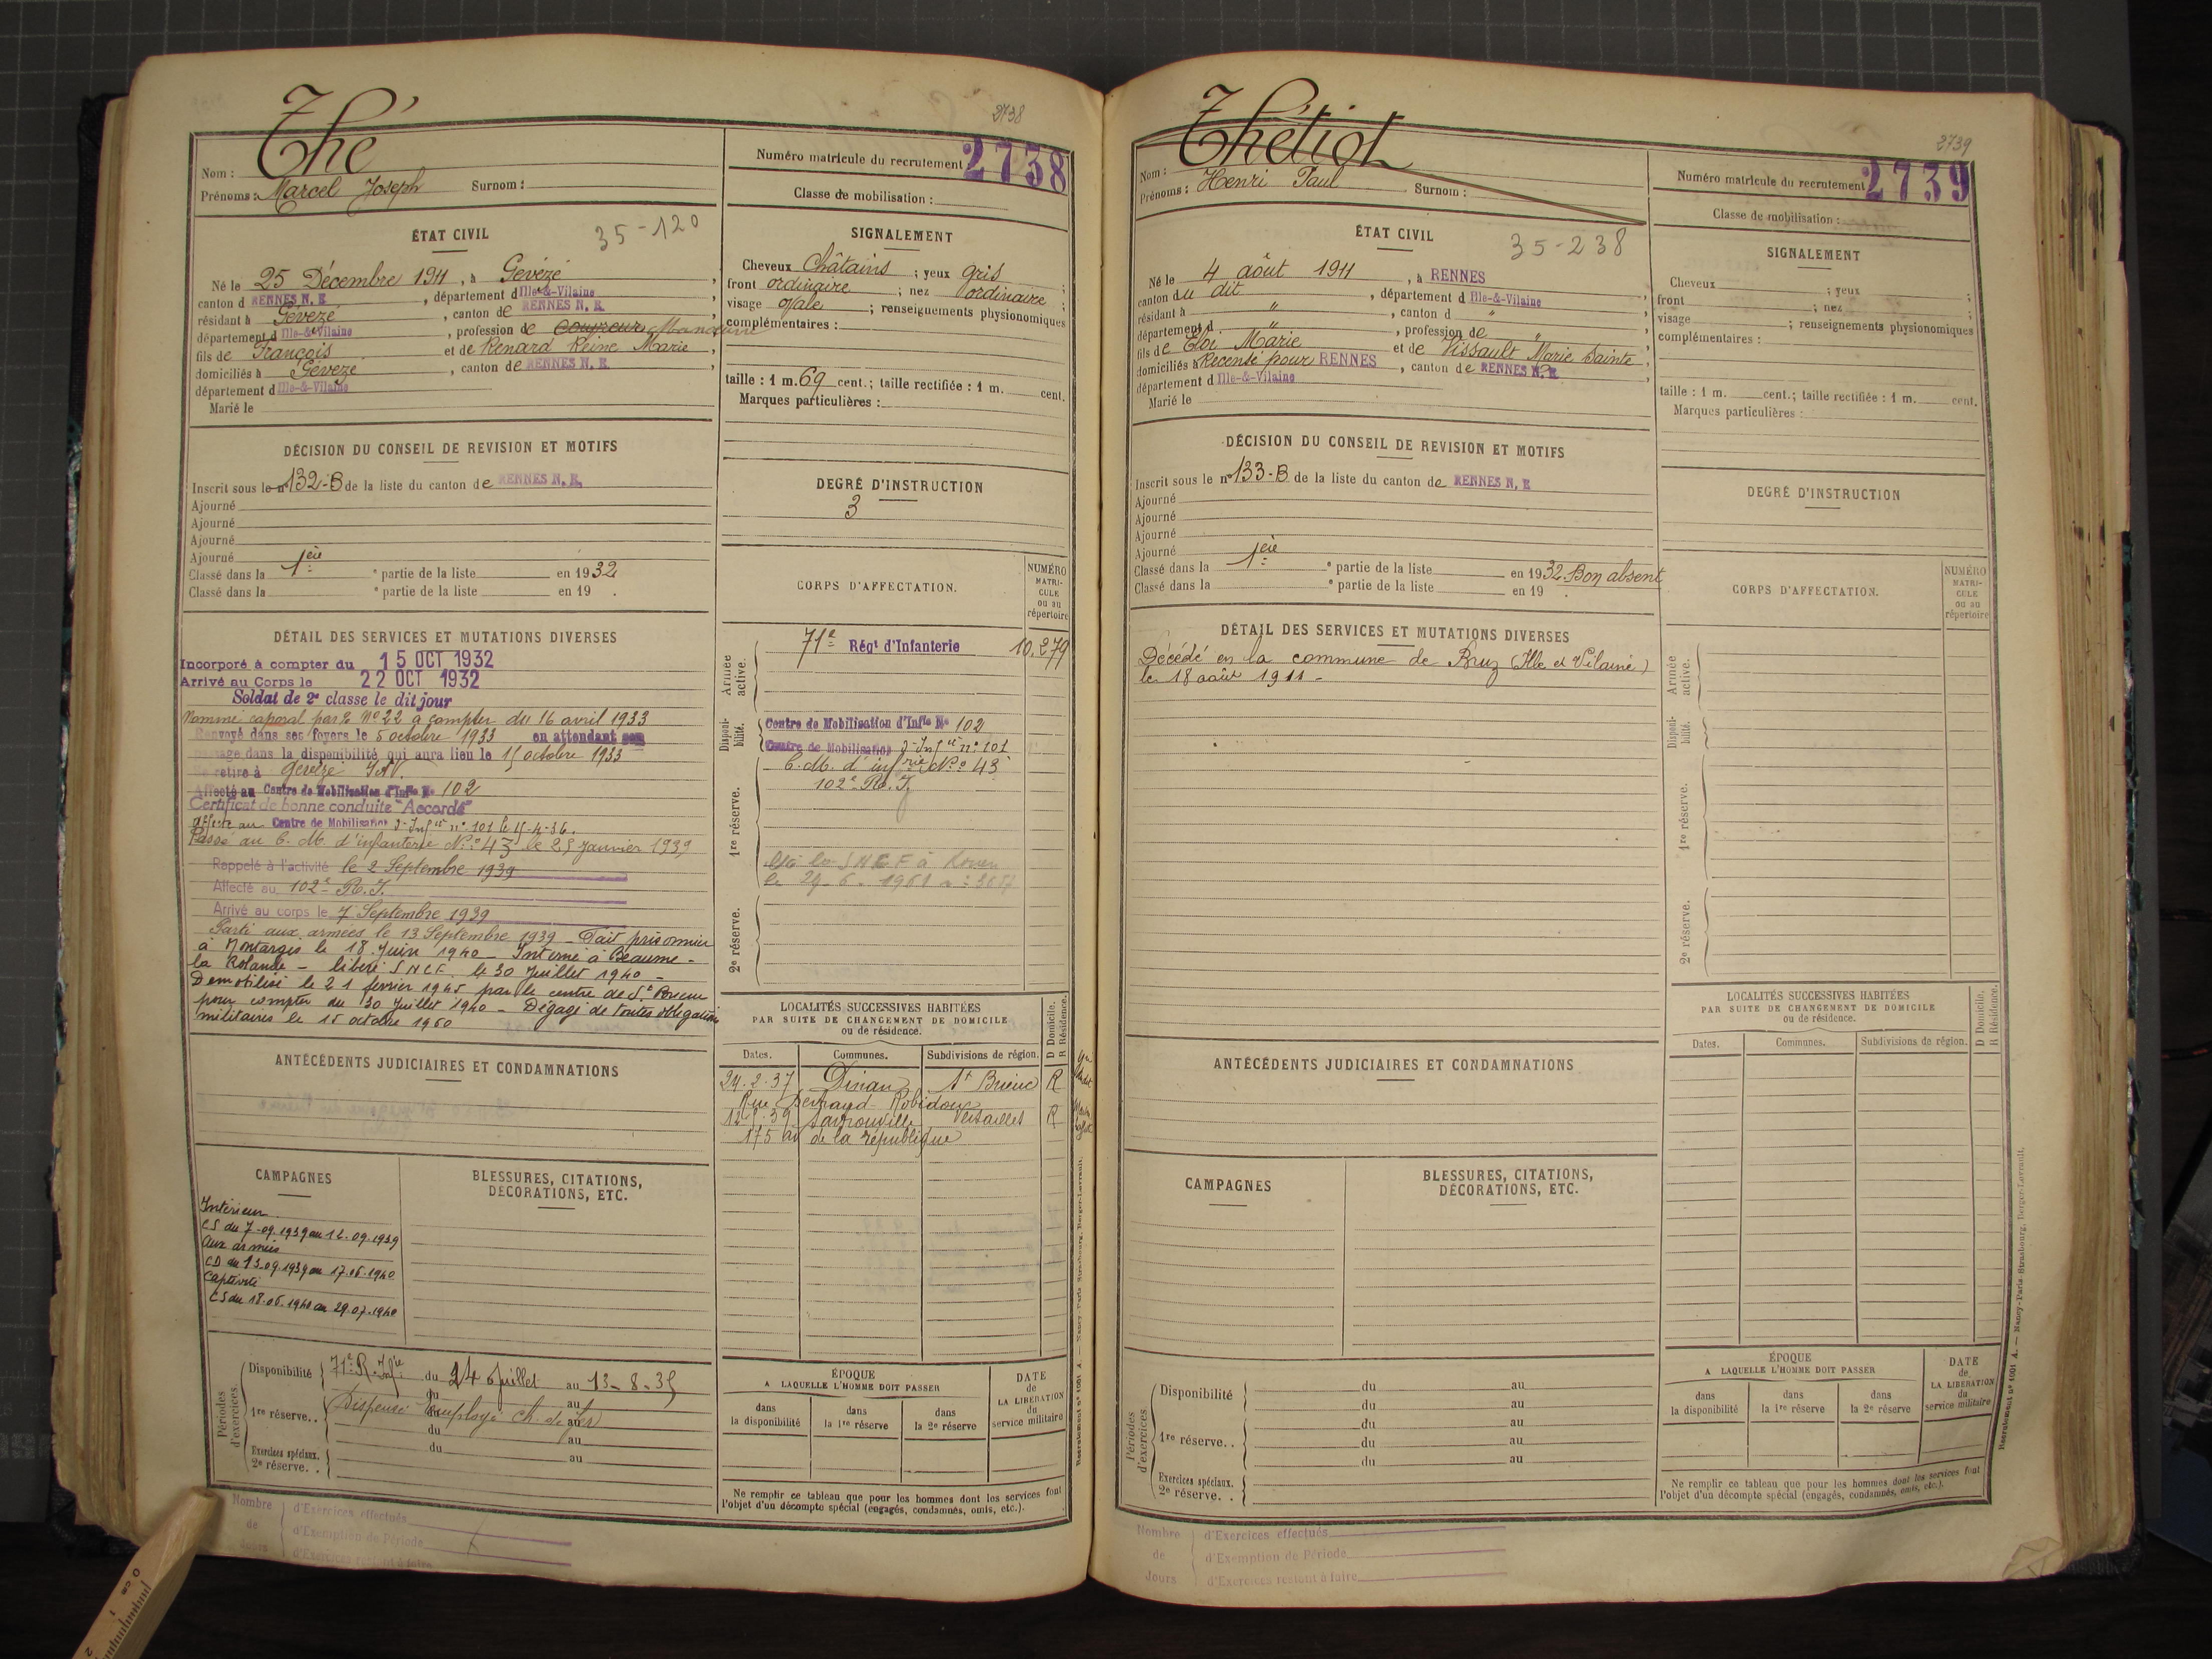 2738
Thé
Nom :
Prénoms : Marcel Joseph Surnom :
Numéro matricule du recrutement 2738
Classe de mobilisation :
ÉTAT CIVIL
35-120
Né le 25 Décembre 1911, à Gévezé,
canton d RENNES N. E, département d Ille-&-Vilaine,
résidant à Gévezé, canton de RENNES N. E.
département d Ille-&-Vilaine, profession de couvreur Manœuvre
fils de François et de Renard Reine Marie,
domiciliés à Gévezé, canton de RENNES N. E.,
département d Ille-&-Vilaine
Marié le
SIGNALEMENT
Cheveux Châtains ; yeux gris ;
front ordinaire ; nez ordinaire ;
visage ovale ; renseignements physionomiques
complémentaires :
taille : 1 m. 69 cent.; taille rectifiée : 1 m. cent.
Marques particulières :
DÉCISION DU CONSEIL DE REVISION ET MOTIFS
Inscrit sous le n° 132-B de la liste du canton de RENNES N. E.
Ajourné
Ajourné
Ajourné
Ajourné
Classé dans la 1ère ° partie de la liste en 1932
Classé dans la ° partie de la liste en 19 .
DEGRÉ D'INSTRUCTION
3
DÉTAIL DES SERVICES ET MUTATIONS DIVERSES
Incorporé à compter du 15 OCT 1932
Arrivé au Corps le 22 OCT 1932
Soldat de 2e classe le dit jour
Nommé caporal par N° 22 à compter du 16 avril 1933
Renvoyé dans ses foyers le 5 octobre 1933 en attendant son
passage dans la disponibilité qui aura lieu le 15 octobre 1933
Se retire à Gévezé I&V.
Affecté au Centre de Mobilisation d'Infie N° 102
Certificat de bonne conduite "Accordé"
affecté au Centre de Mobilisation d'Infie n° 101 le 15-4-36.
Passé au C. M. d'infanterie N° 43 le 25 Janvier 1939
Rappelé à l'activité le 2 Septembre 1939
Affecté au 102e R. I.
Arrivé au corps le 7 Septembre 1939
Parti aux armées le 13 Septembre 1939 - Fait prisonnier
à Montargis le 18 Juin 1940 - Interné à Beaume-
la Rolande - libéré SNCF le 30 Juillet 1940 -
Démobilisé le 21 février 1945 par le centre de St Brieuc
pour compter du 30 Juillet 1940 - Dégagé de toutes obligations
militaires le 15 octobre 1960
CORPS D'AFFECTATION.
NUMÉRO MATRI-CULE ou au répertoire
Armée active.
71e Régt d'Infanterie 10.279
Disponi-bilité.
Centre de Mobilisation d'Infie N° 102
Centre de Mobilisation d'Infie n° 101
1re réserve.
C. M. d'infrie N° 43
102e R. I.
SNCF à Rouen
le 29-6-1961
2e réserve.
ANTÉCÉDENTS JUDICIAIRES ET CONDAMNATIONS
LOCALITÉS SUCCESSIVES HABITÉES
PAR SUITE DE CHANGEMENT DE DOMICILE
ou de résidence.
D Domicile.
R Résidence.
Dates. Communes. Subdivisions de région.
24.2.37 Dinan St Brieuc R
Rue Bertrand Robidou
Sartrouville Versailles R
175 av de la république
CAMPAGNES
Intérieur
CS du 7-09.1939 au 12.09.1939
aux armées
CD du 13.09.1939 au 17.06.1940
Captivité
CS du 18.06.1940 au 29.07.1940
BLESSURES, CITATIONS,
DÉCORATIONS, ETC.
Périodes d'exercices.
Disponibilité 71e R. Infie du 24 Juillet au 13-8-35
du au
1re réserve. . Dispensé employé ch. de fer
du au
du au
Exercices spéciaux.
2e réserve. .
ÉPOQUE
A LAQUELLE L'HOMME DOIT PASSER
dans la disponibilité
dans la 1re réserve
dans la 2e réserve
DATE de LA LIBÉRATION du service militaire
Ne remplir ce tableau que pour les hommes dont les services font
l'objet d'un décompte spécial (engagés, condamnés, omis, etc.).
Nombre de Jours
d'Exercices effectués
d'Exemption de Période
d'Exercices restant à faire
2739
Thétiot
Nom :
Prénoms : Henri Paul Surnom :
Numéro matricule du recrutement 2739
Classe de mobilisation :
ÉTAT CIVIL
35-238
Né le 4 août 1911, à RENNES
canton du dit, département d Ille-&-Vilaine,
résidant à ", canton d "
département d ", profession de ",
fils de Eloi Marie et de Vissault Marie Sainte,
domiciliés à Recensé pour RENNES, canton de RENNES N. E,
département d Ille-&-Vilaine
Marié le
SIGNALEMENT
Cheveux ; yeux ;
front ; nez ;
visage ; renseignements physionomiques
complémentaires :
taille : 1 m. cent.; taille rectifiée : 1 m. cent.
Marques particulières :
DÉCISION DU CONSEIL DE REVISION ET MOTIFS
Inscrit sous le n° 133-B de la liste du canton de RENNES N. E
Ajourné
Ajourné
Ajourné
Ajourné
Classé dans la 1ère ° partie de la liste en 1932. Bon absent
Classé dans la ° partie de la liste en 19 .
DEGRÉ D'INSTRUCTION
DÉTAIL DES SERVICES ET MUTATIONS DIVERSES
Décédé en la commune de Bruz (Ille et Vilaine)
le 18 août 1911 -
CORPS D'AFFECTATION.
NUMÉRO MATRI-CULE ou au répertoire
Armée active.
Disponi-bilité.
1re réserve.
2e réserve.
ANTÉCÉDENTS JUDICIAIRES ET CONDAMNATIONS
LOCALITÉS SUCCESSIVES HABITÉES
PAR SUITE DE CHANGEMENT DE DOMICILE
ou de résidence.
D Domicile.
R Résidence.
Dates. Communes. Subdivisions de région.
CAMPAGNES
BLESSURES, CITATIONS,
DÉCORATIONS, ETC.
Périodes d'exercices
Disponibilité du au
du au
du au
1re réserve. . du au
du au
Exercices spéciaux.
2e réserve. .
ÉPOQUE
A LAQUELLE L'HOMME DOIT PASSER
dans la disponibilité
dans la 1re réserve
dans la 2e réserve
DATE de LA LIBÉRATION du service militaire
Ne remplir ce tableau que pour les hommes dont les services font
l'objet d'un décompte spécial (engagés, condamnés, omis, etc.).
Recrutement n° 1001 A. — Nancy-Paris-Strasbourg, Berger-Levrault.
Nombre de Jours
d'Exercices effectués
d'Exemption de Période
d'Exercices restant à faire